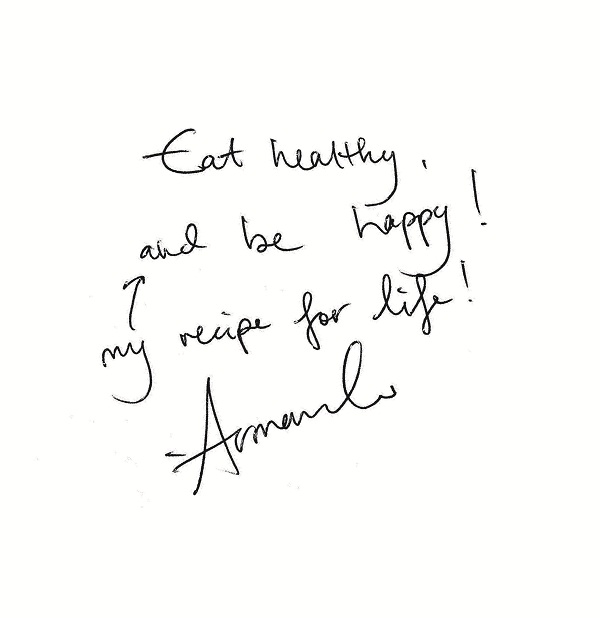 Eat healthy,
and be happy!
↑
my recipe for life!
-Armando